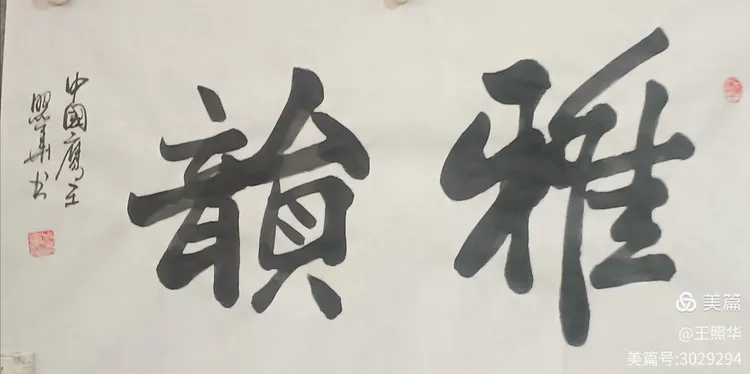 雅韻
中國鷹王
照華书
美篇
@王照华
美篇号:3029294